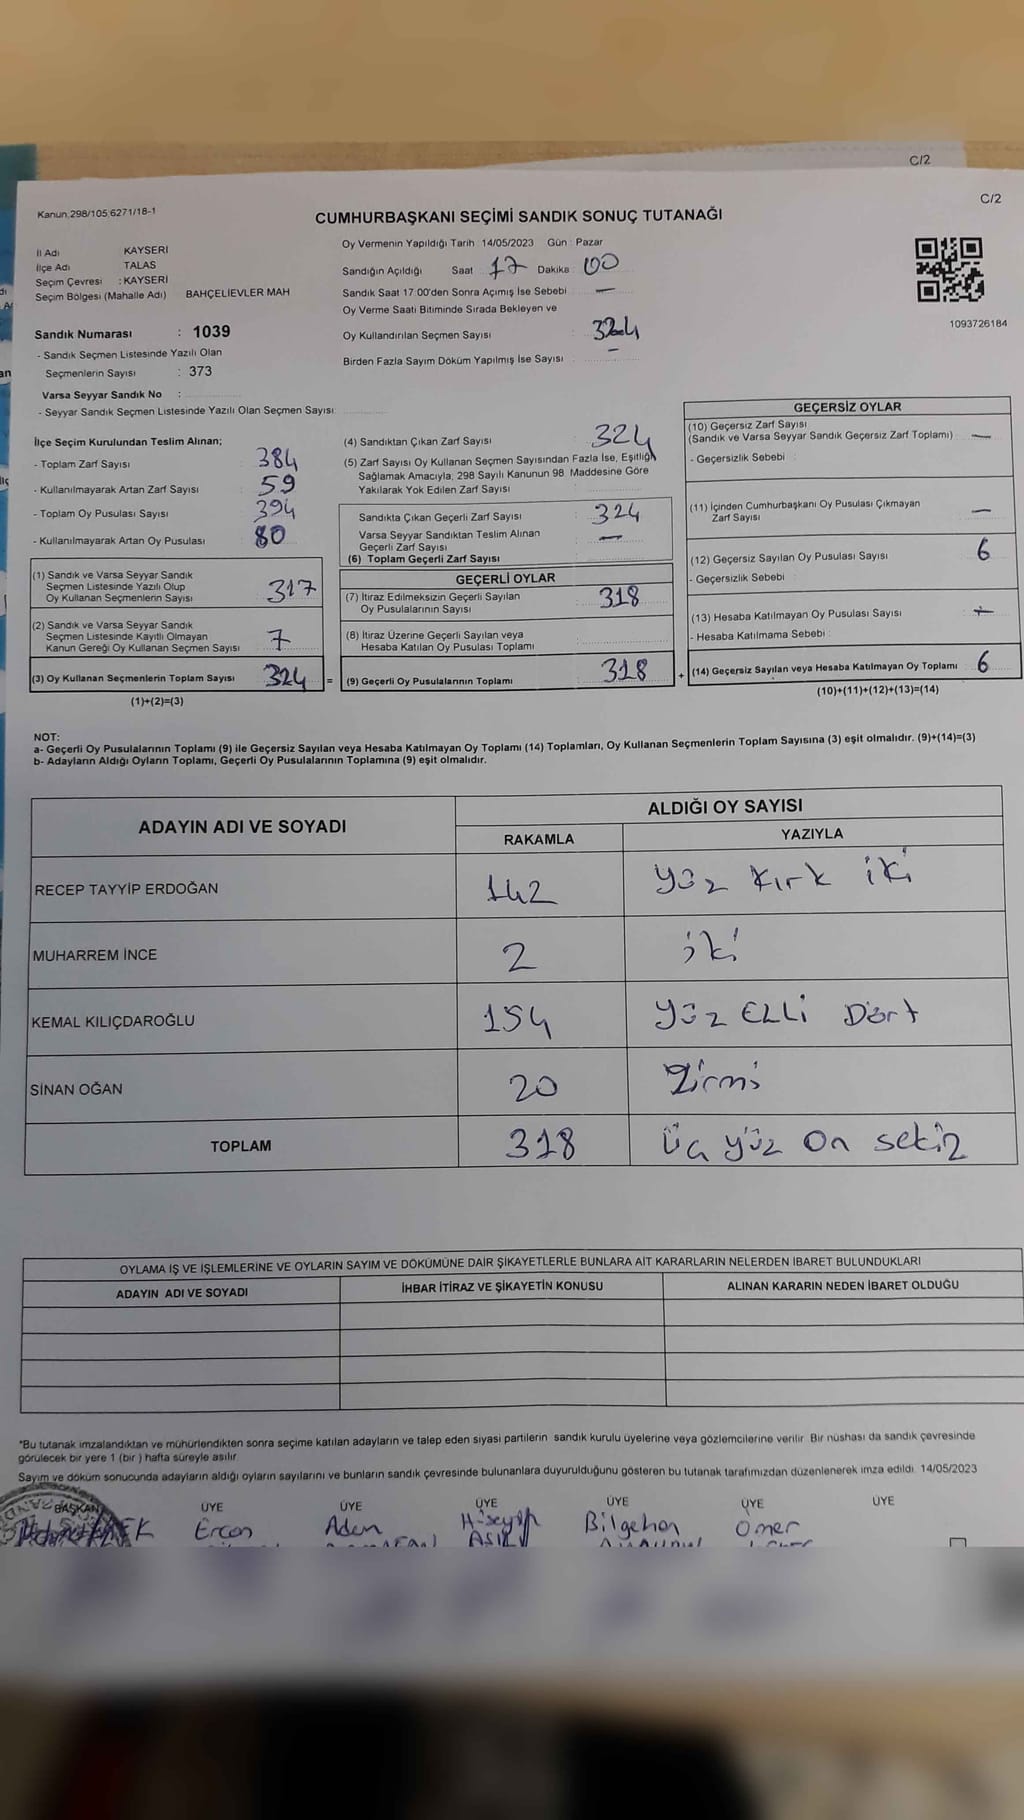 C/2
C/2
Kanun,298/105,6271/18-1
CUMHURBAŞKANI SEÇİMİ SANDIK SONUÇ TUTANAĞI
İl Adı KAYSERİ
İlçe Adı TALAS
Seçim Çevresi : KAYSERİ
Seçim Bölgesi (Mahalle Adı) BAHÇELİEVLER MAH
Sandık Numarası : 1039
- Sandık Seçmen Listesinde Yazılı Olan
Seçmenlerin Sayısı : 373
Varsa Seyyar Sandık No :
- Seyyar Sandık Seçmen Listesinde Yazılı Olan Seçmen Sayısı
Oy Vermenin Yapıldığı Tarih 14/05/2023 Gün : Pazar
Sandığın Açıldığı Saat 17 Dakika 00
Sandık Saat 17:00'den Sonra Açımış İse Sebebi —
Oy Verme Saati Bitiminde Sırada Bekleyen ve
Oy Kullandırılan Seçmen Sayısı : 324
Birden Fazla Sayım Döküm Yapılmış İse Sayısı : —
1093726184
İlçe Seçim Kurulundan Teslim Alınan;
- Toplam Zarf Sayısı : 384
- Kullanılmayarak Artan Zarf Sayısı : 59
- Toplam Oy Pusulası Sayısı : 394
- Kullanılmayarak Artan Oy Pusulası : 80
(1) Sandık ve Varsa Seyyar Sandık
Seçmen Listesinde Yazılı Olup
Oy Kullanan Seçmenlerin Sayısı : 317
(2) Sandık ve Varsa Seyyar Sandık
Seçmen Listesinde Kayıtlı Olmayan
Kanun Gereği Oy Kullanan Seçmen Sayısı : 7
(3) Oy Kullanan Seçmenlerin Toplam Sayısı 324 =
(1)+(2)=(3)
(4) Sandıktan Çıkan Zarf Sayısı : 324
(5) Zarf Sayısı Oy Kullanan Seçmen Sayısından Fazla İse, Eşitliği
Sağlamak Amacıyla, 298 Sayılı Kanunun 98. Maddesine Göre
Yakılarak Yok Edilen Zarf Sayısı :
Sandıkta Çıkan Geçerli Zarf Sayısı : 324
Varsa Seyyar Sandıktan Teslim Alınan
Geçerli Zarf Sayısı : —
(6) Toplam Geçerli Zarf Sayısı :
GEÇERLİ OYLAR
(7) İtiraz Edilmeksizin Geçerli Sayılan
Oy Pusulalarının Sayısı : 318
(8) İtiraz Üzerine Geçerli Sayılan veya
Hesaba Katılan Oy Pusulası Toplamı :
(9) Geçerli Oy Pusulalarının Toplamı : 318 +
GEÇERSİZ OYLAR
(10) Geçersiz Zarf Sayısı
(Sandık ve Varsa Seyyar Sandık Geçersiz Zarf Toplamı) —
- Geçersizlik Sebebi :
(11) İçinden Cumhurbaşkanı Oy Pusulası Çıkmayan
Zarf Sayısı —
(12) Geçersiz Sayılan Oy Pusulası Sayısı 6
- Geçersizlik Sebebi :
(13) Hesaba Katılmayan Oy Pusulası Sayısı —
- Hesaba Katılmama Sebebi :
(14) Geçersiz Sayılan veya Hesaba Katılmayan Oy Toplamı 6
(10)+(11)+(12)+(13)=(14)
NOT:
a- Geçerli Oy Pusulalarının Toplamı (9) ile Geçersiz Sayılan veya Hesaba Katılmayan Oy Toplamı (14) Toplamları, Oy Kullanan Seçmenlerin Toplam Sayısına (3) eşit olmalıdır. (9)+(14)=(3)
b- Adayların Aldığı Oyların Toplamı, Geçerli Oy Pusulalarının Toplamına (9) eşit olmalıdır.
ADAYIN ADI VE SOYADI ALDIĞI OY SAYISI
RAKAMLA YAZIYLA
RECEP TAYYİP ERDOĞAN 142 yüz kırk iki
MUHARREM İNCE 2 iki
KEMAL KILIÇDAROĞLU 154 yüz ELLi Dört
SİNAN OĞAN 20 Yirmi
TOPLAM 318 Üç yüz On sekiz
OYLAMA İŞ VE İŞLEMLERİNE VE OYLARIN SAYIM VE DÖKÜMÜNE DAİR ŞİKAYETLERLE BUNLARA AİT KARARLARIN NELERDEN İBARET BULUNDUKLARI
ADAYIN ADI VE SOYADI İHBAR İTİRAZ VE ŞİKAYETİN KONUSU ALINAN KARARIN NEDEN İBARET OLDUĞU
*Bu tutanak imzalandıktan ve mühürlendikten sonra seçime katılan adayların ve talep eden siyasi partilerin sandık kurulu üyelerine veya gözlemcilerine verilir. Bir nüshası da sandık çevresinde
görülecek bir yere 1 (bir) hafta süreyle asılır
Sayım ve döküm sonucunda adayların aldığı oyların sayılarını ve bunların sandık çevresinde bulunanlara duyurulduğunu gösteren bu tutanak tarafımızdan düzenlenerek imza edildi. 14/05/2023
BAŞKAN ÜYE ÜYE ÜYE ÜYE ÜYE ÜYE
Ercan Adem Hüseyin Bilgehan Ömer